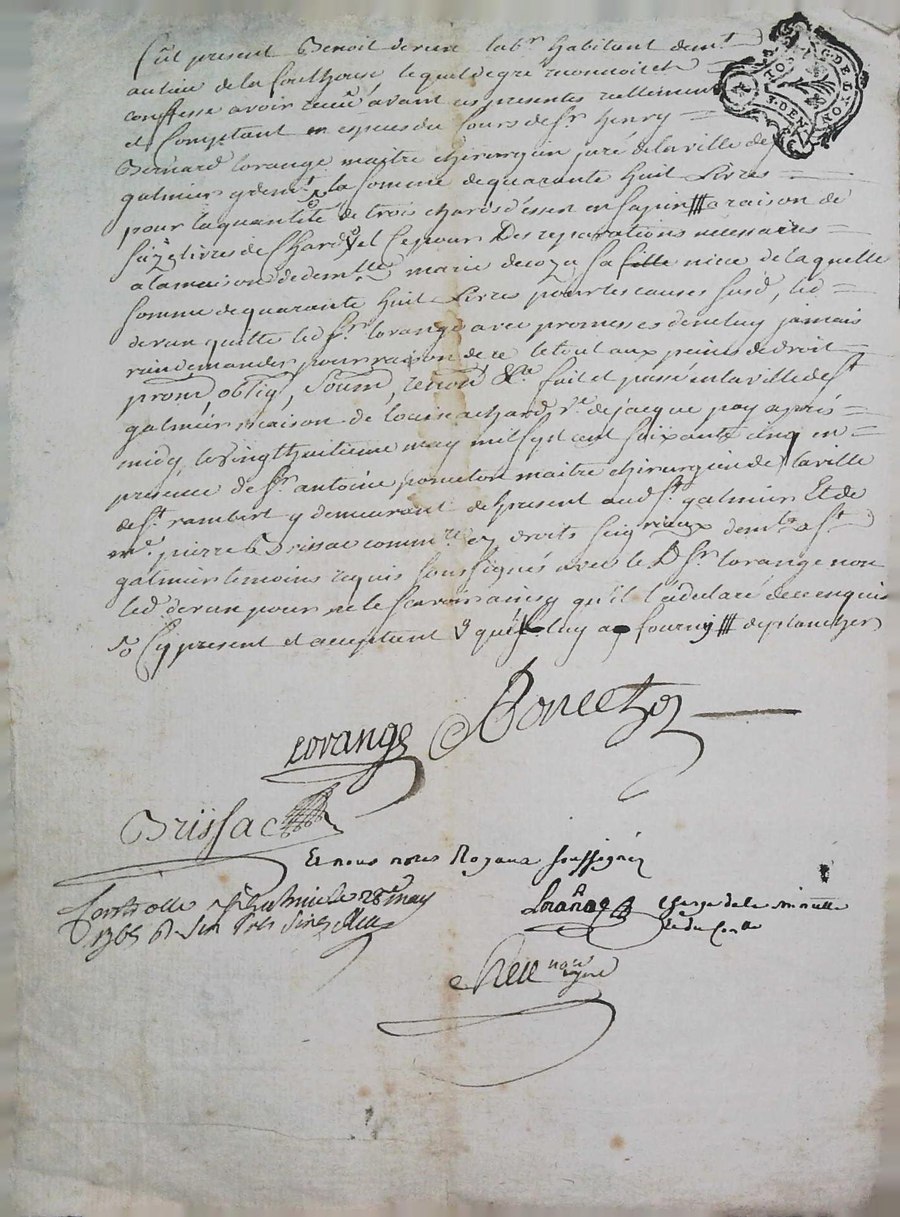 fut present Benoit derue lab.r habitant dem.t
G. DE LYON
3. DEN.
au lieu de la lequel de gré reconnoit et
confesse avoir receu avant ces presentes reellement
et Comptant en especes du Cours de S.r henry
Bernard lorange maitre chirurgien juré de la ville de S.t
galmier y dem.t la somme de quarante huit Livres
pour la quantité de trois chards d'essen en sapin a raison de
saize livres le Chard et ce pour Des reparations necessaires
a la maison de dem.lle marie decoza sa fille niece de laquelle
somme de quarante huit Livres pour les causes susd, led
derue quitte led S.r lorange avec promesses de ne luy jamais
rien demander pour raison de ce le tout aux peines de droit
prom, oblig, Soum, renon &a fait et passé en la ville de S.t
galmier maison de louise achard v.e de jacque pay après
midy le vingt huitieme may mil sept cent soixante cinq en
presence de S.r antoine ponceton maitre chirurgien de la ville
de S.t rambert y demeurant de present aud S.t galmier Et de
m.e pierre Brissac comm.re ez droits seigrieux dem.t a S.t
galmier temoins requis soussignés avec le D S.r lorange non
led derue pour ne le scavoir ainsy qu'il l'a declaré de ce enquis
Cy present et acceptant qui luy a fourny de plancher
lorange Ponceton
Brissac
Et nous no.re Royaux soussignés
Controllé a S.t galmier le 28.e may
1765 R Six sols Six den
chargé de la minutte
et du Conlle
no.re royal